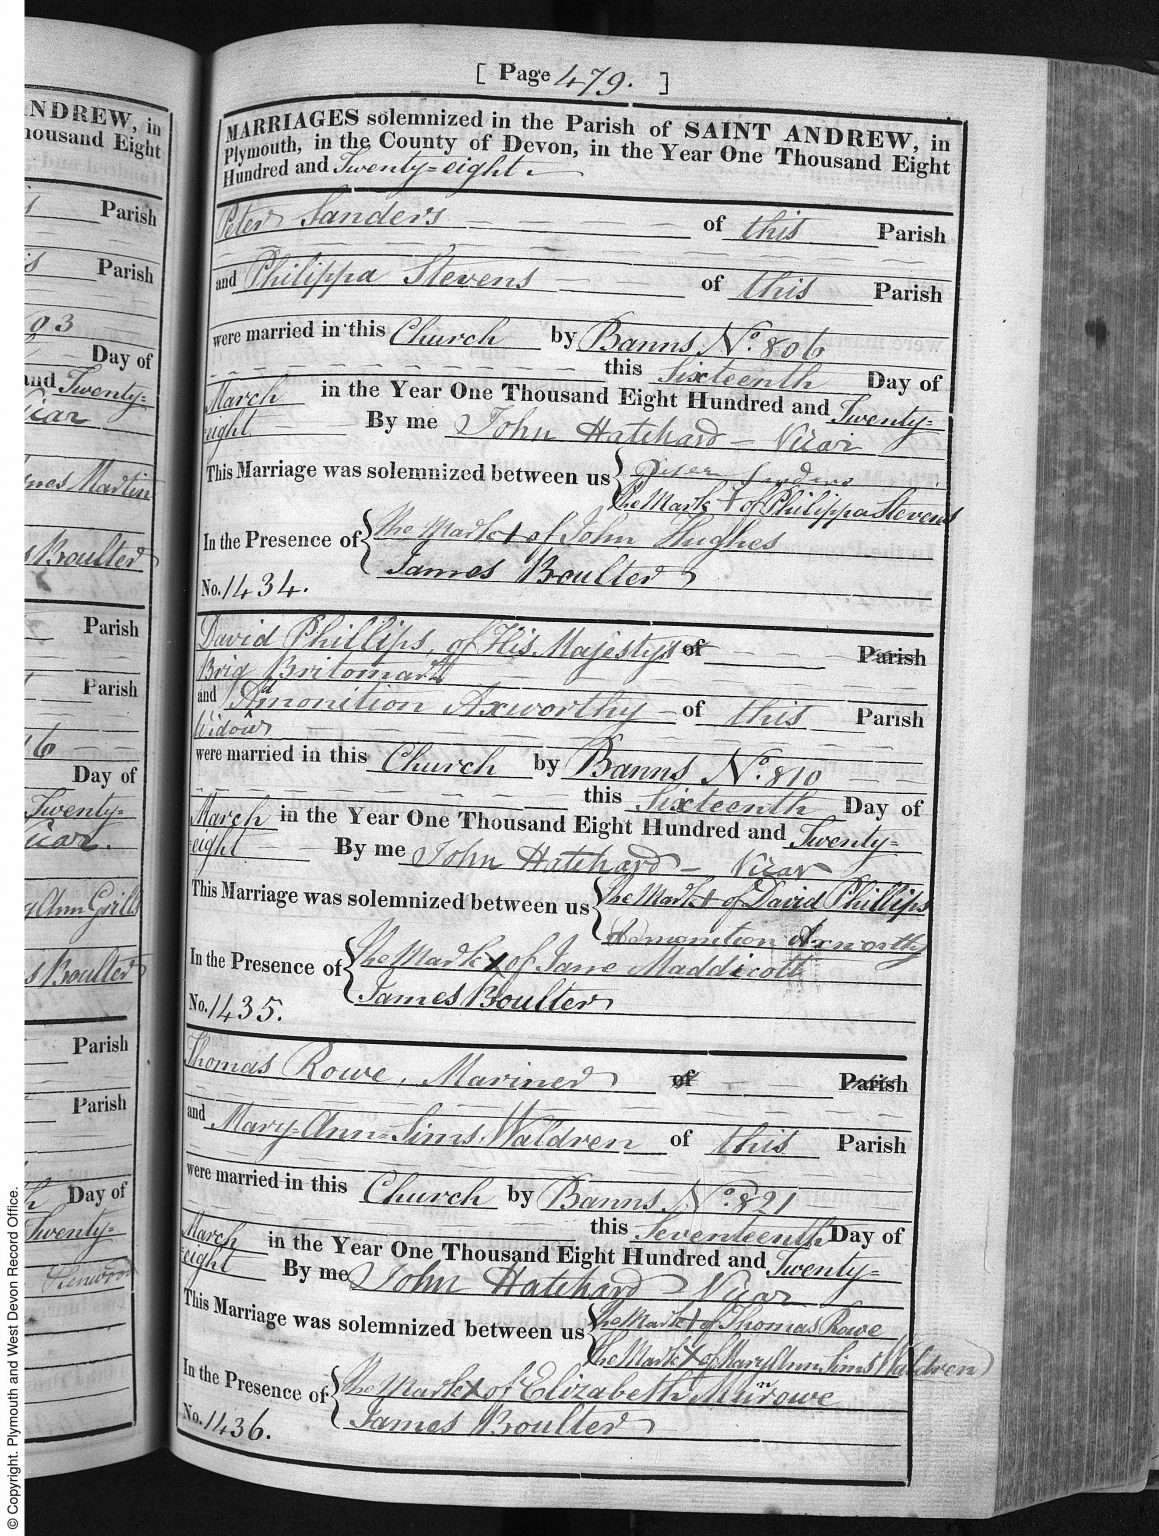 [ Page 479. ]
MARRIAGES solemnized in the Parish of SAINT ANDREW, in
Plymouth, in the County of Devon, in the Year One Thousand Eight
Hundred and Twenty=eight
Peter Sanders of this Parish
and Philippa Stevens of this Parish
were married in this Church by Banns No. 806
this Sixteenth Day of
March in the Year One Thousand Eight Hundred and Twenty=
eight By me John Hatchard – Vicar
This Marriage was solemnized between us
The Mark + of Philippa Stevens
In the Presence of The Mark + of John Hughes
James Boulter
No. 1434.
David Phillips, of His Majestys of Parish
Brig Britomart
and Admonition Axworthy of this Parish
Widow
were married in this Church by Banns No. 810
this Sixteenth Day of
March in the Year One Thousand Eight Hundred and Twenty=
eight By me John Hatchard – Vicar
This Marriage was solemnized between us The Mark + of David Phillips
Admonition Axworthy
In the Presence of The Mark X of Jane Maddicott
James Boulter
No. 1435.
Thomas Rowe, Mariner of Parish
and Mary=Ann=Sims Waldren of this Parish
were married in this Church by Banns No. 821
this Seventeenth Day of
March in the Year One Thousand Eight Hundred and Twenty=
eight By me John Hatchard Vicar
This Marriage was solemnized between us The Mark + of Thomas Rowe
The Mark X of Mary Ann Sims Waldren
In the Presence of The Mark X of Elizabeth
James Boulter
No. 1436.
ANDREW, in
housand Eight
Parish
Parish
Day of
and Twenty=
Vicar
Martin
Boulter
Parish
Parish
Day of
Twenty=
Vicar.
Ann Grills
Boulter
Parish
Parish
Day of
Twenty=
© Copyright. Plymouth and West Devon Record Office.